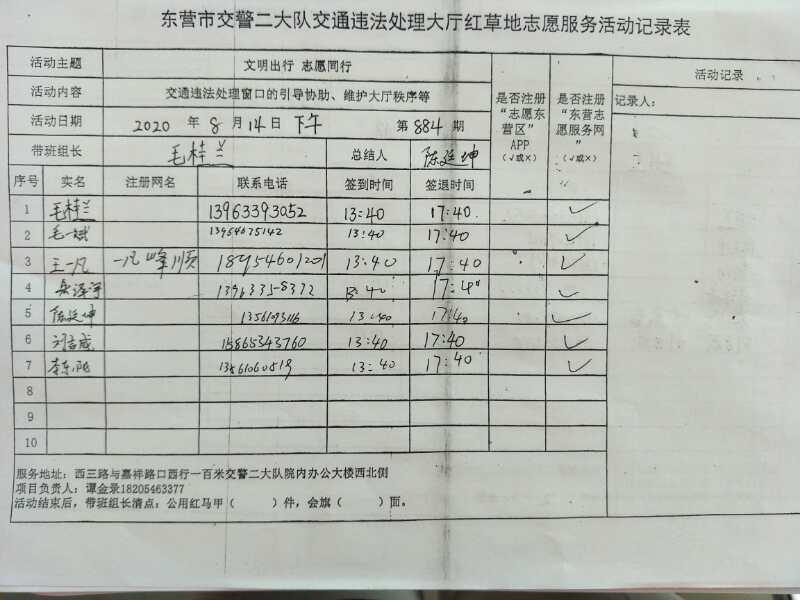 东营市交警二大队交通违法处理大厅红草地志愿服务活动记录表
活动主题 文明出行 志愿同行
活动内容 交通违法处理窗口的引导协助、维护大厅秩序等
活动日期 2020 年 8 月 14 日 下午 第 884 期
带班组长 毛桂兰 总结人 陈延坤
是否注册“志愿东营区”APP（√或×）
是否注册“东营志愿服务网”（√或×）
活动记录
记录人：
序号 实名 注册网名 联系电话 签到时间 签退时间
1 毛桂兰 13963393052 13:40 17:40 ✓
2 毛一斌 13954675142 13:40 17:40 ✓
3 王一凡 一凡峰顺 18954601201 13:40 17:40 ✓
4 13963358372 13:40 17:40 ✓
5 陈延坤 13:40 17:40 ✓
6 刘吉成 15865343760 13:40 17:40 ✓
7 李东阳 13561060519 13:40 17:40 ✓
8
9
10
服务地址：西三路与嘉祥路口西行一百米交警二大队院内办公大楼西北侧
项目负责人：谭金录18205463377
活动结束后，带班组长清点：公用红马甲（ ）件，会旗（ ）面。